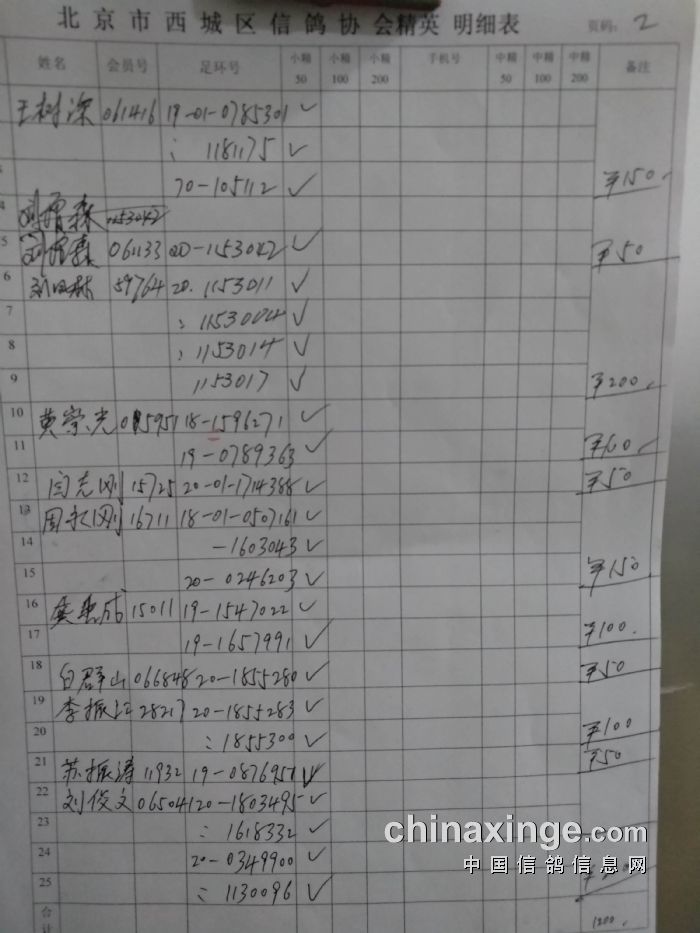 北京市西城区信鸽协会精英 明细表 页码： 2
姓名 会员号 足环号 小精 50 小精 100 小精 200 手机号 中精 50 中精 100 中精 200 备注
王树深 061416 19-01-0785301 ✓
: 1181175 ✓
20-105112 ✓ ￥150.
4
5 061133 20-1153042 ✓ ￥50
6 59764 20. 1153011 ✓
7 : 1153004 ✓
8 : 1153014 ✓
9 1153017 ✓ ￥200.
10 黄崇光 18-1596271 ✓
11 19-0789363 ✓
12 闫克刚 15725 20-01-1714388 ✓ ￥50
13 周永刚 16711 18-01-0507161 ✓
14 -1603043 ✓
15 20-0246203 ✓ ￥150
16 15011 19-1547022 ✓
17 19-1657991 ✓ ￥100.
18 白群山 066848 20-1855280 ✓ ￥50
19 李振江 28217 20-1855283 ✓
20 : 1855300 ✓ ￥100
21 苏振涛 11932 19-0876951 ✓ ￥50
22 刘俊文 065041 20-1803495 ✓
23 : 1618332 ✓
24 20-0349900 ✓
25 : 1130096 ✓
合计 1200.
chinaxinge.com
中国信鸽信息网